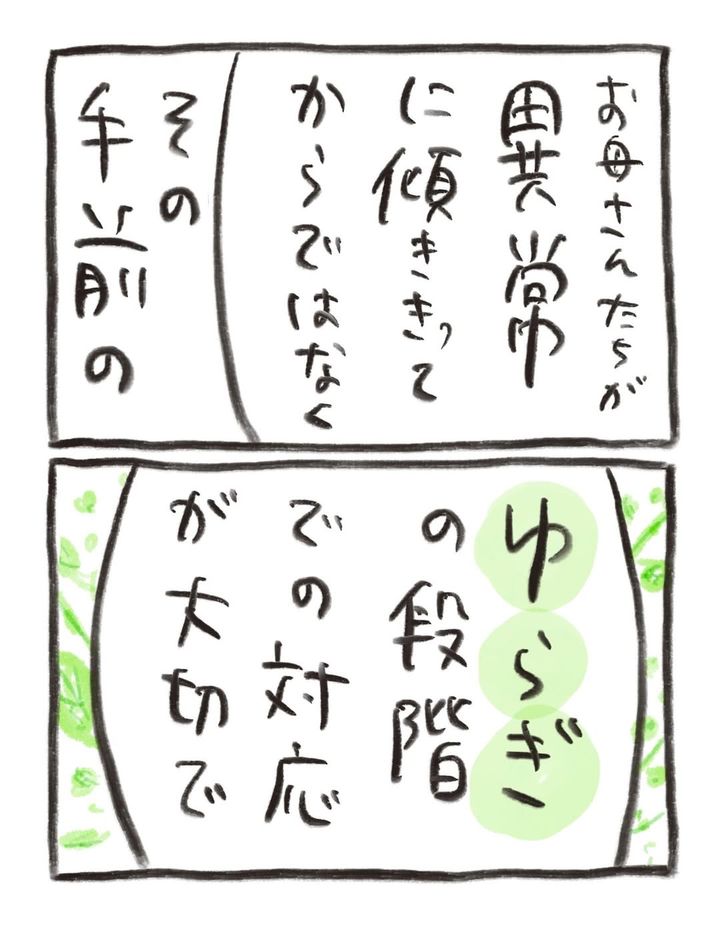 お母さんたちが
異常
に傾ききって
からではなく
その
手前の
ゆらぎ
の段階
での対応
が大切で